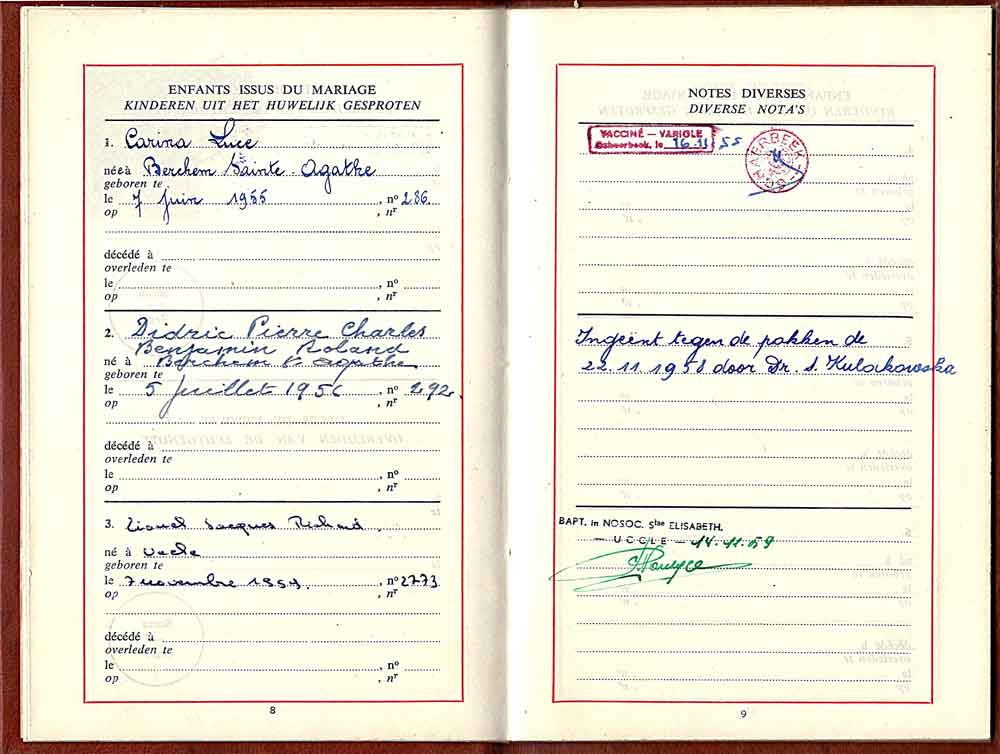 ENFANTS ISSUS DU MARIAGE
KINDEREN UIT HET HUWELIJK GESPROTEN
1. Carina Luce
née à Berchem Sainte-Agathe
geboren te
le 7 juin 1955, nº 286
op , nr
décédé à
overleden te
le , nº
op , nr
2. Didric Pierre Charles
Benjamin Roland
né à Berchem Ste Agathe
geboren te
le 5 juillet 1956, nº 292
op , nr
décédé à
overleden te
le , nº
op , nr
3. Lionel Jacques Richard.
né à Uccle
geboren te
le 7 novembre 1959. , nº 2773
op , nr
décédé à
overleden te
le , nº
op , nr
8
NOTES DIVERSES
DIVERSE NOTA'S
VACCINÉ – VARIOLE
Schaerbeek, le 16.11 55
SCHAERBEEK
Ingeënt tegen de pokken de
22.11.1958 door Dr. S. Kulakowska
BAPT. in NOSOC. Stae ELISABETH.
— UCCLE — 14.11.59
9